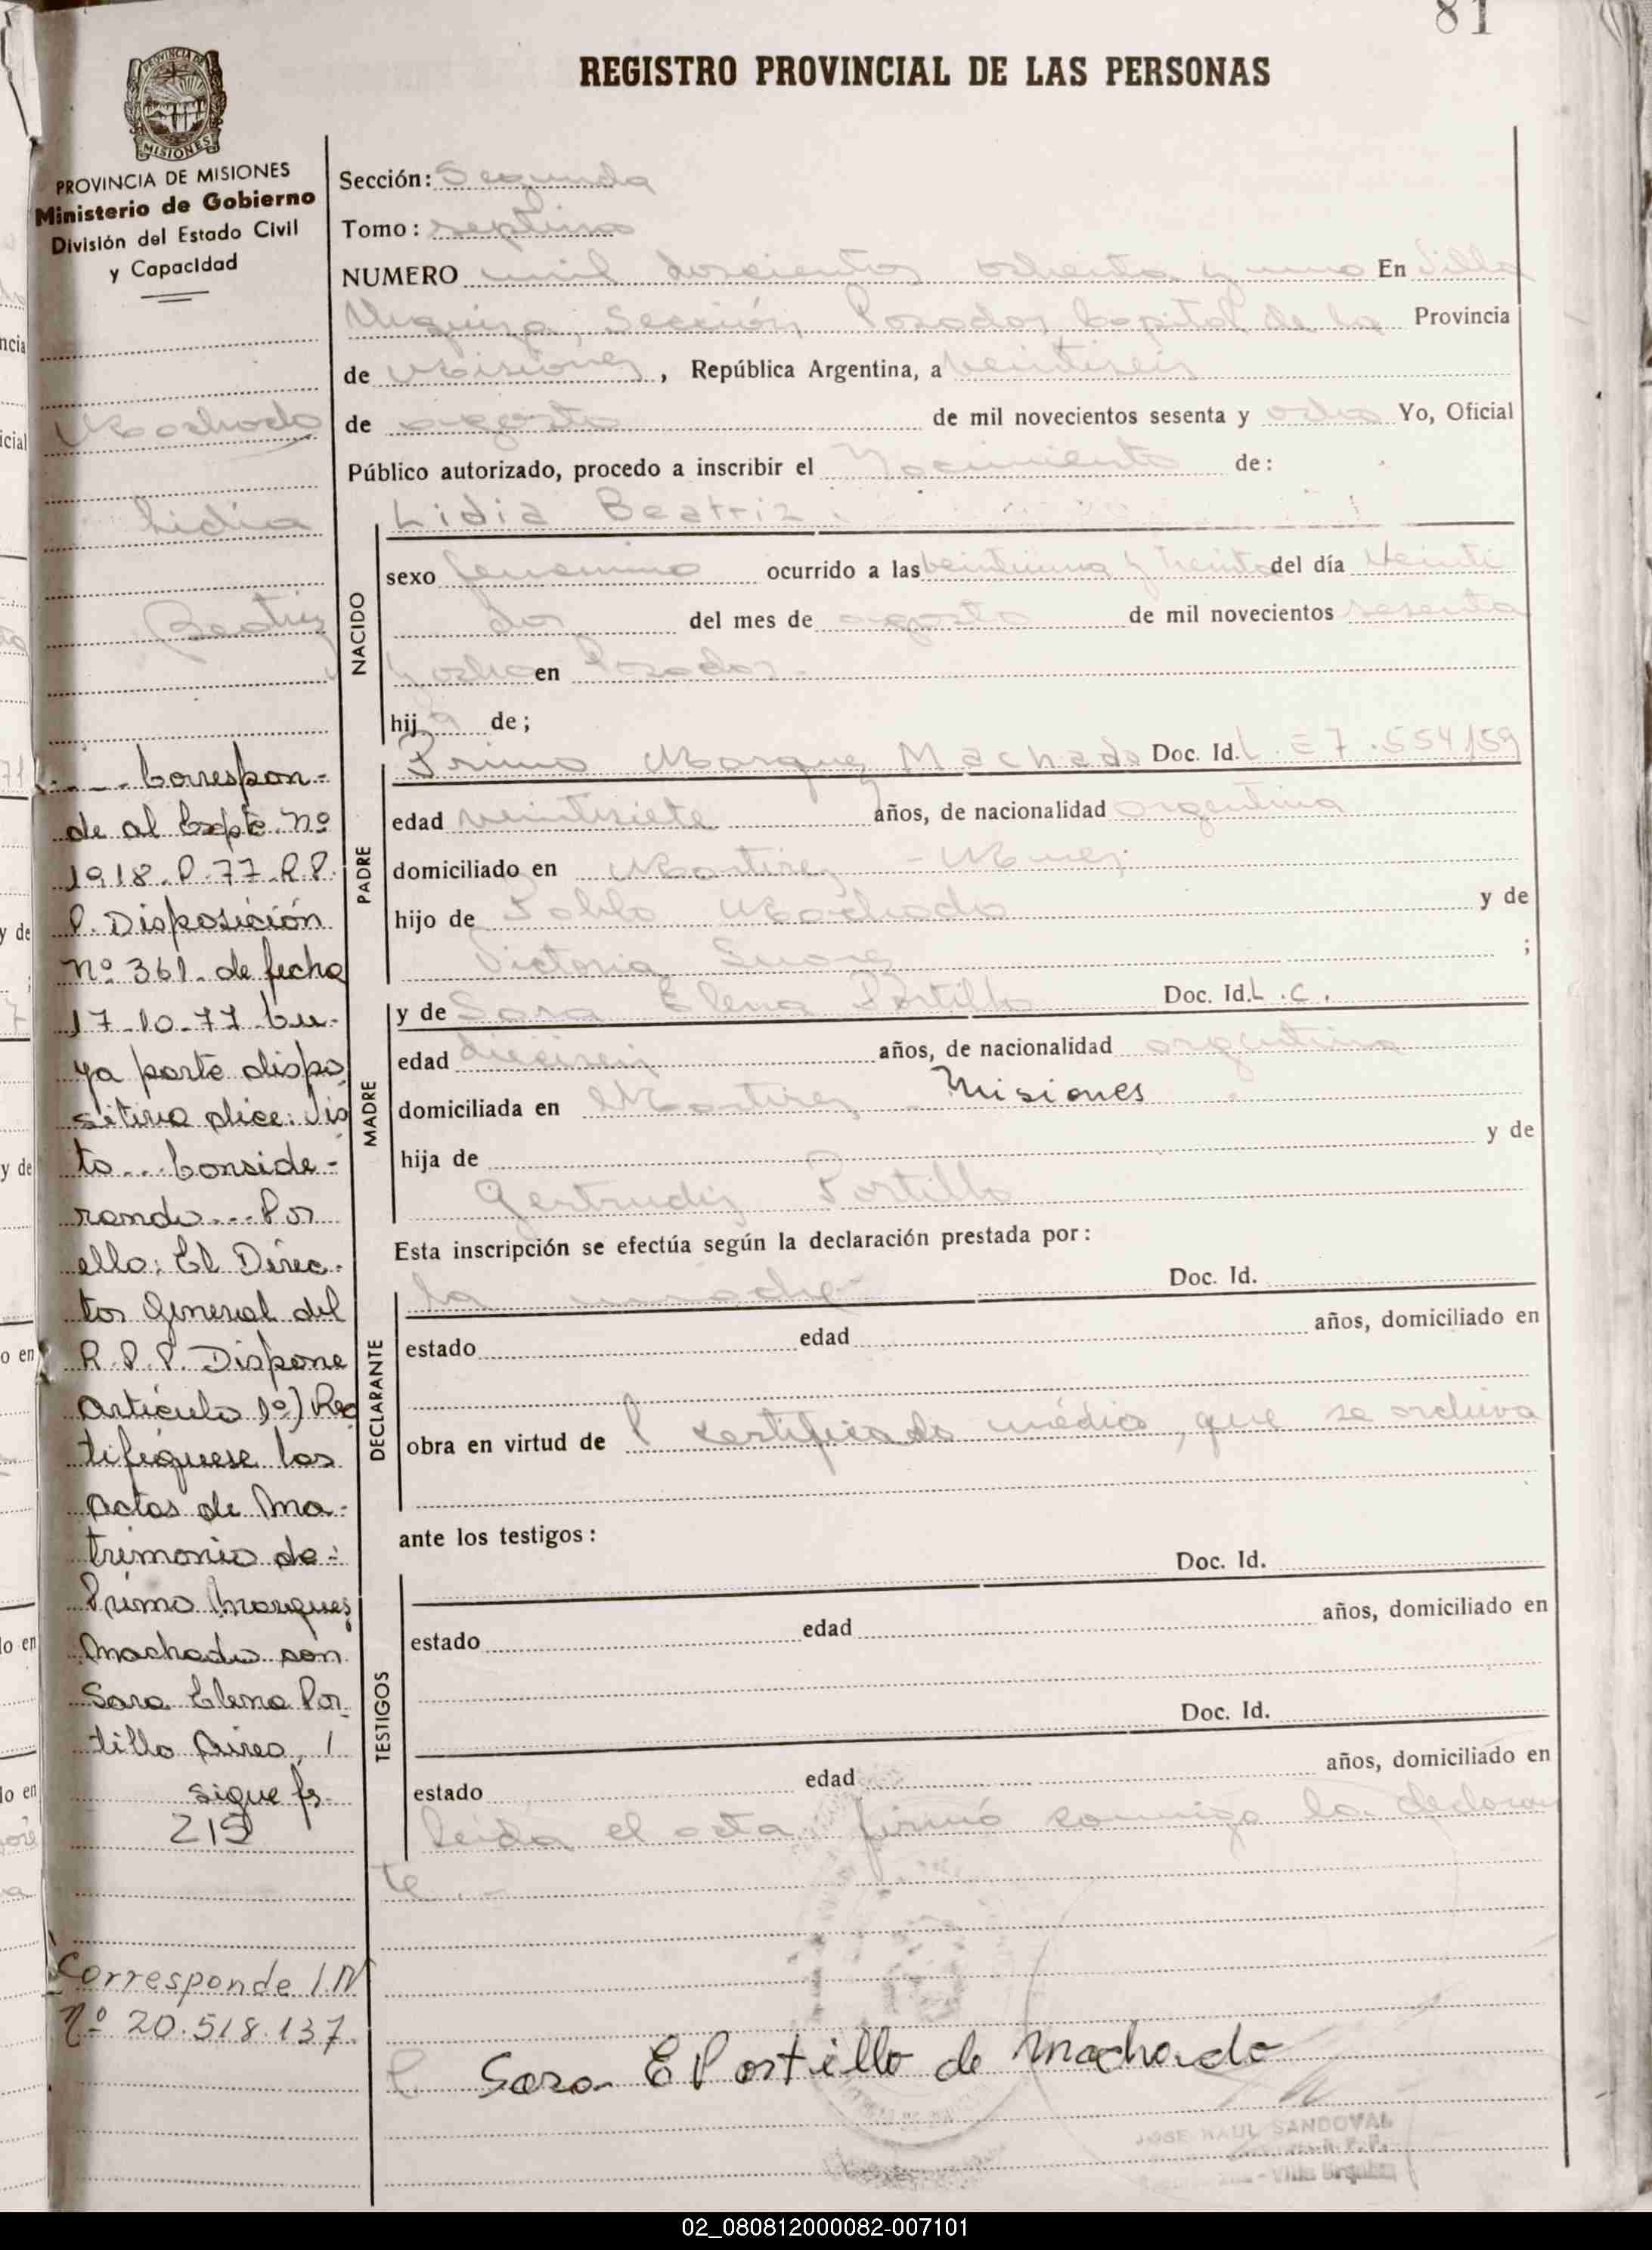 81
REGISTRO PROVINCIAL DE LAS PERSONAS
MISIONES
PROVINCIA DE MISIONES
Ministerio de Gobierno
División del Estado Civil
y Capacidad
Machado
Lidia
Beatriz
Correspon-
de al Expte. Nº
1918.P.77.R.P.
P. Disposición
Nº 361. de fecha
17-10-77 Cu-
ya parte dispo
sitiva dice: Vis
to... Conside-
rando... Por
ello: El Direc-
tor General del
R.P.P. Dispone
Artículo 1º) Rec
tifíquese las
actas de Ma-
trimonio de:
Primo Marques
Machado con
Sara Elena Por
tillo
sigue fs.
219
Corresponde I.N
Nº 20.518.137
Sección: Segunda
Tomo: septimo
NUMERO mil doscientos ochenta y uno En Villa
Urquiza, Sección Posadas Capital de la Provincia
de Misiones, República Argentina, a veintiseis
de agosto de mil novecientos sesenta y ocho Yo, Oficial
Público autorizado, procedo a inscribir el Nacimiento de:
NACIDO
Lidia Beatriz
sexo femenino ocurrido a las veintiuna y treinta del día veinti
dos del mes de agosto de mil novecientos sesenta
y ocho en Posadas.
hija de;
PADRE
Primo Marquez Machado Doc. Id. L.E 7.554159
edad veintisiete años, de nacionalidad argentina
domiciliado en Martires - Mnes.
hijo de Pablo Machado y de
Victoria ;
MADRE
y de Sara Elena Portillo Doc. Id. L.C.
edad dieciseis años, de nacionalidad argentina
domiciliada en Martires - Misiones
hija de y de
Gertrudis Portillo
Esta inscripción se efectúa según la declaración prestada por:
DECLARANTE
la madre Doc. Id.
estado edad años, domiciliado en
obra en virtud de l certificado médico, que se archiva
ante los testigos:
TESTIGOS
Doc. Id.
estado edad años, domiciliado en
Doc. Id.
estado edad años, domiciliado en
leida el acta, firmó conmigo la declaran
te.-
Sara E Portillo de Machado
JOSE RAUL SANDOVAL
Villa Urquiza
02_080812000082-007101